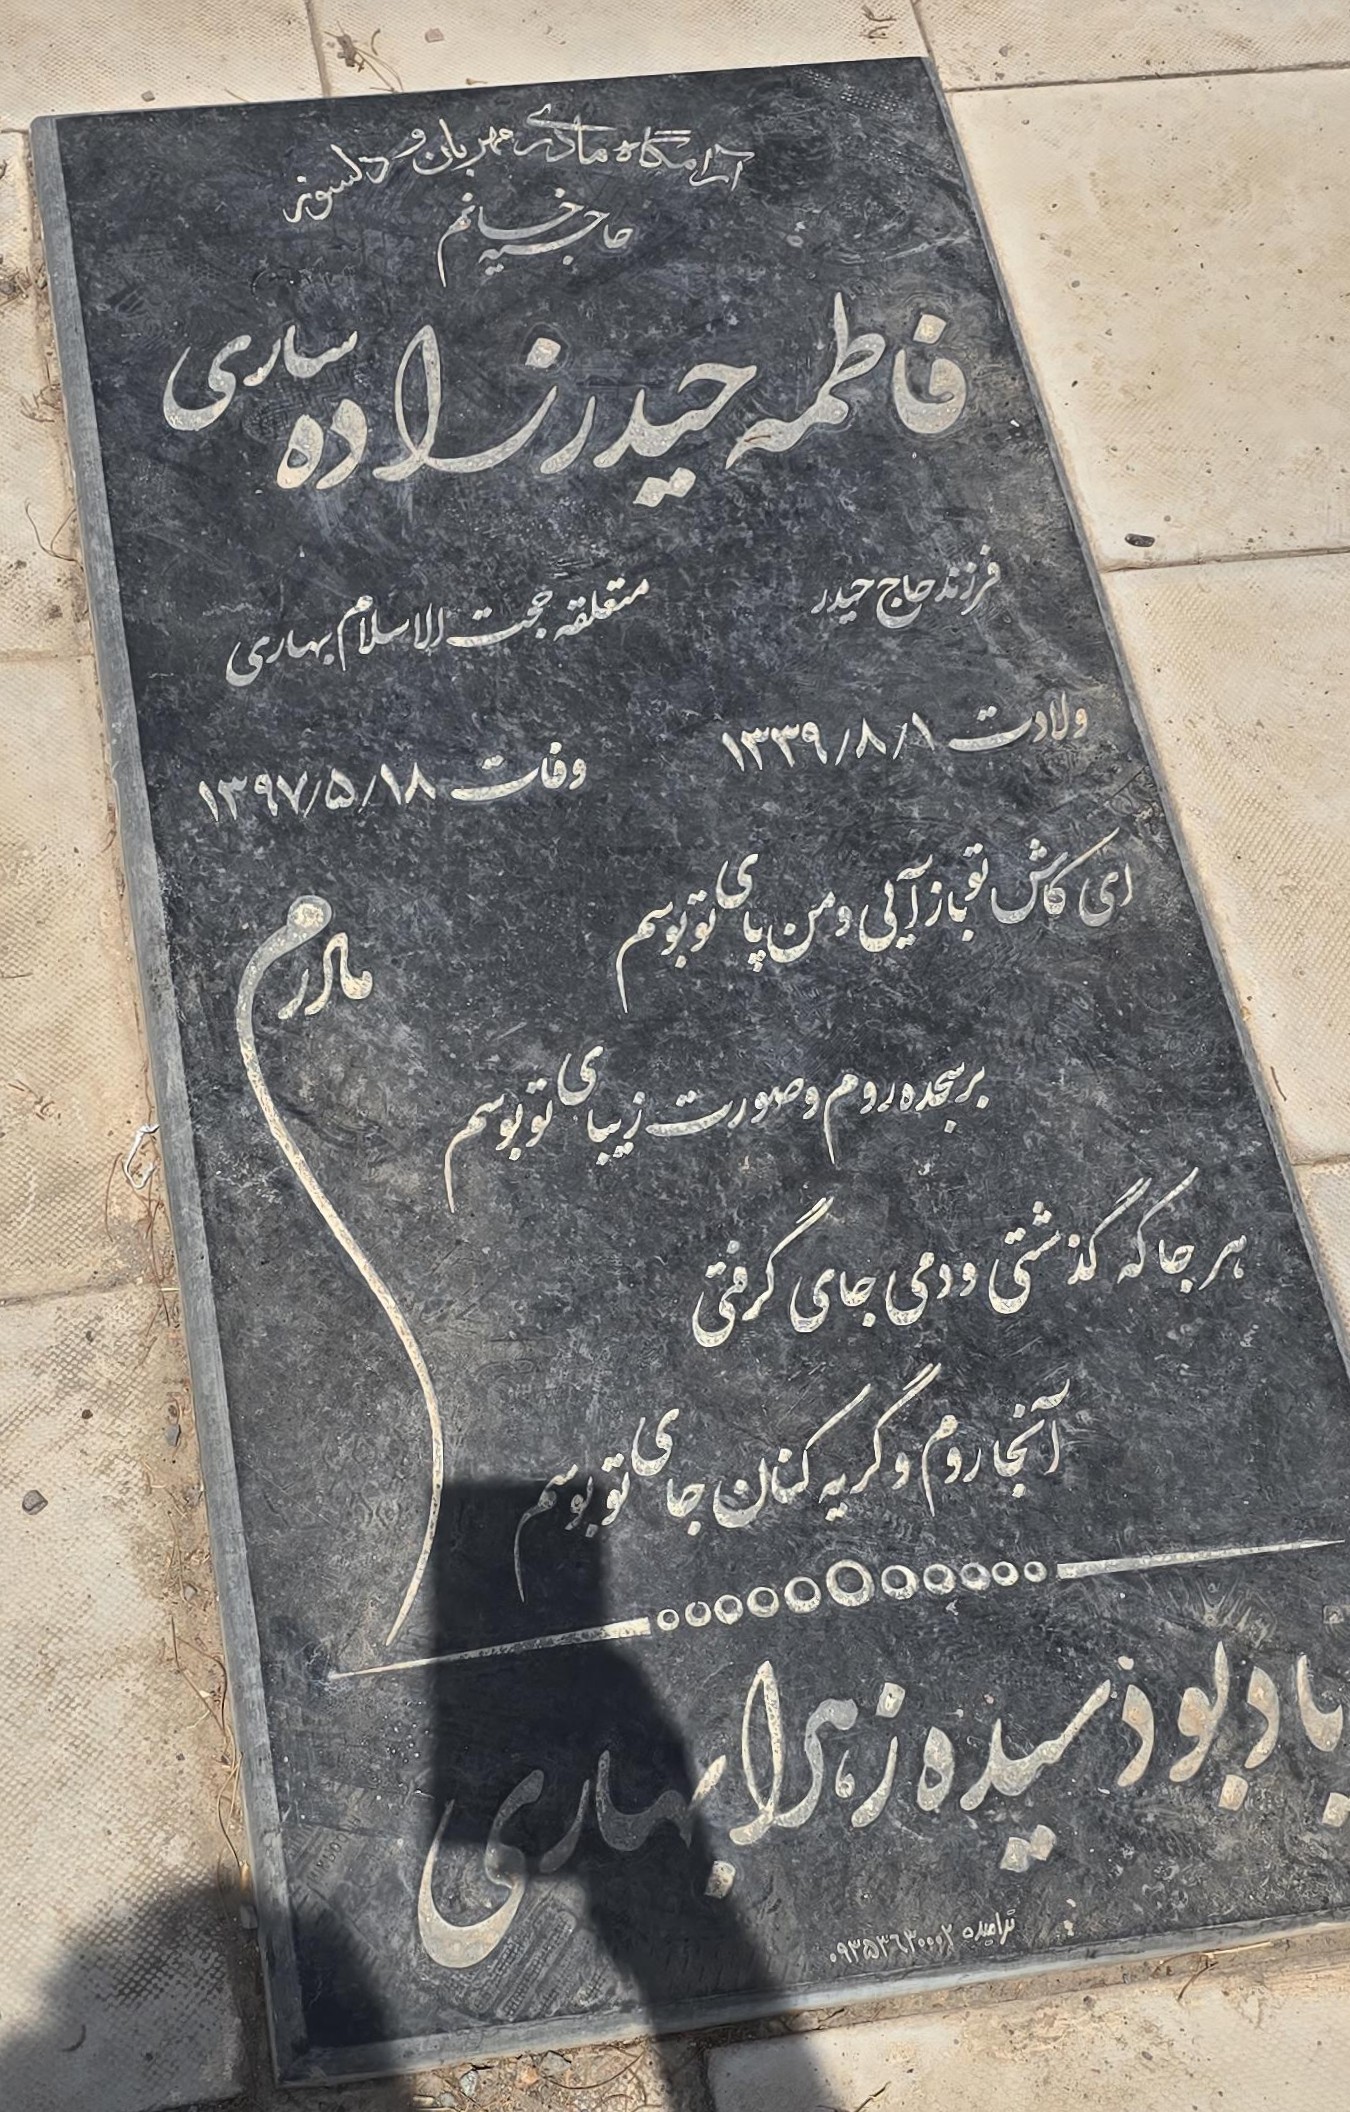 آرامگاه مادری مهربان و دلسوز
حاجیه خانم
فاطمه حیدرزاده ساری
فرزند حاج حیدر
متعلقه حجت الاسلام بهاری
ولادت ۱۳۳۹/۸/۱
وفات ۱۳۹۷/۵/۱۸
مادرم
ای کاش تو باز آیی و من پای تو بوسم
بر سجده روم و صورت زیبای تو بوسم
هر جا که گذشتی و دمی جای گرفتی
آنجا روم و گریه کنان جای تو بوسم
یاد بود سیده زهرا بهاری
۰۹۳۵۳۶۳۰۰۰۲